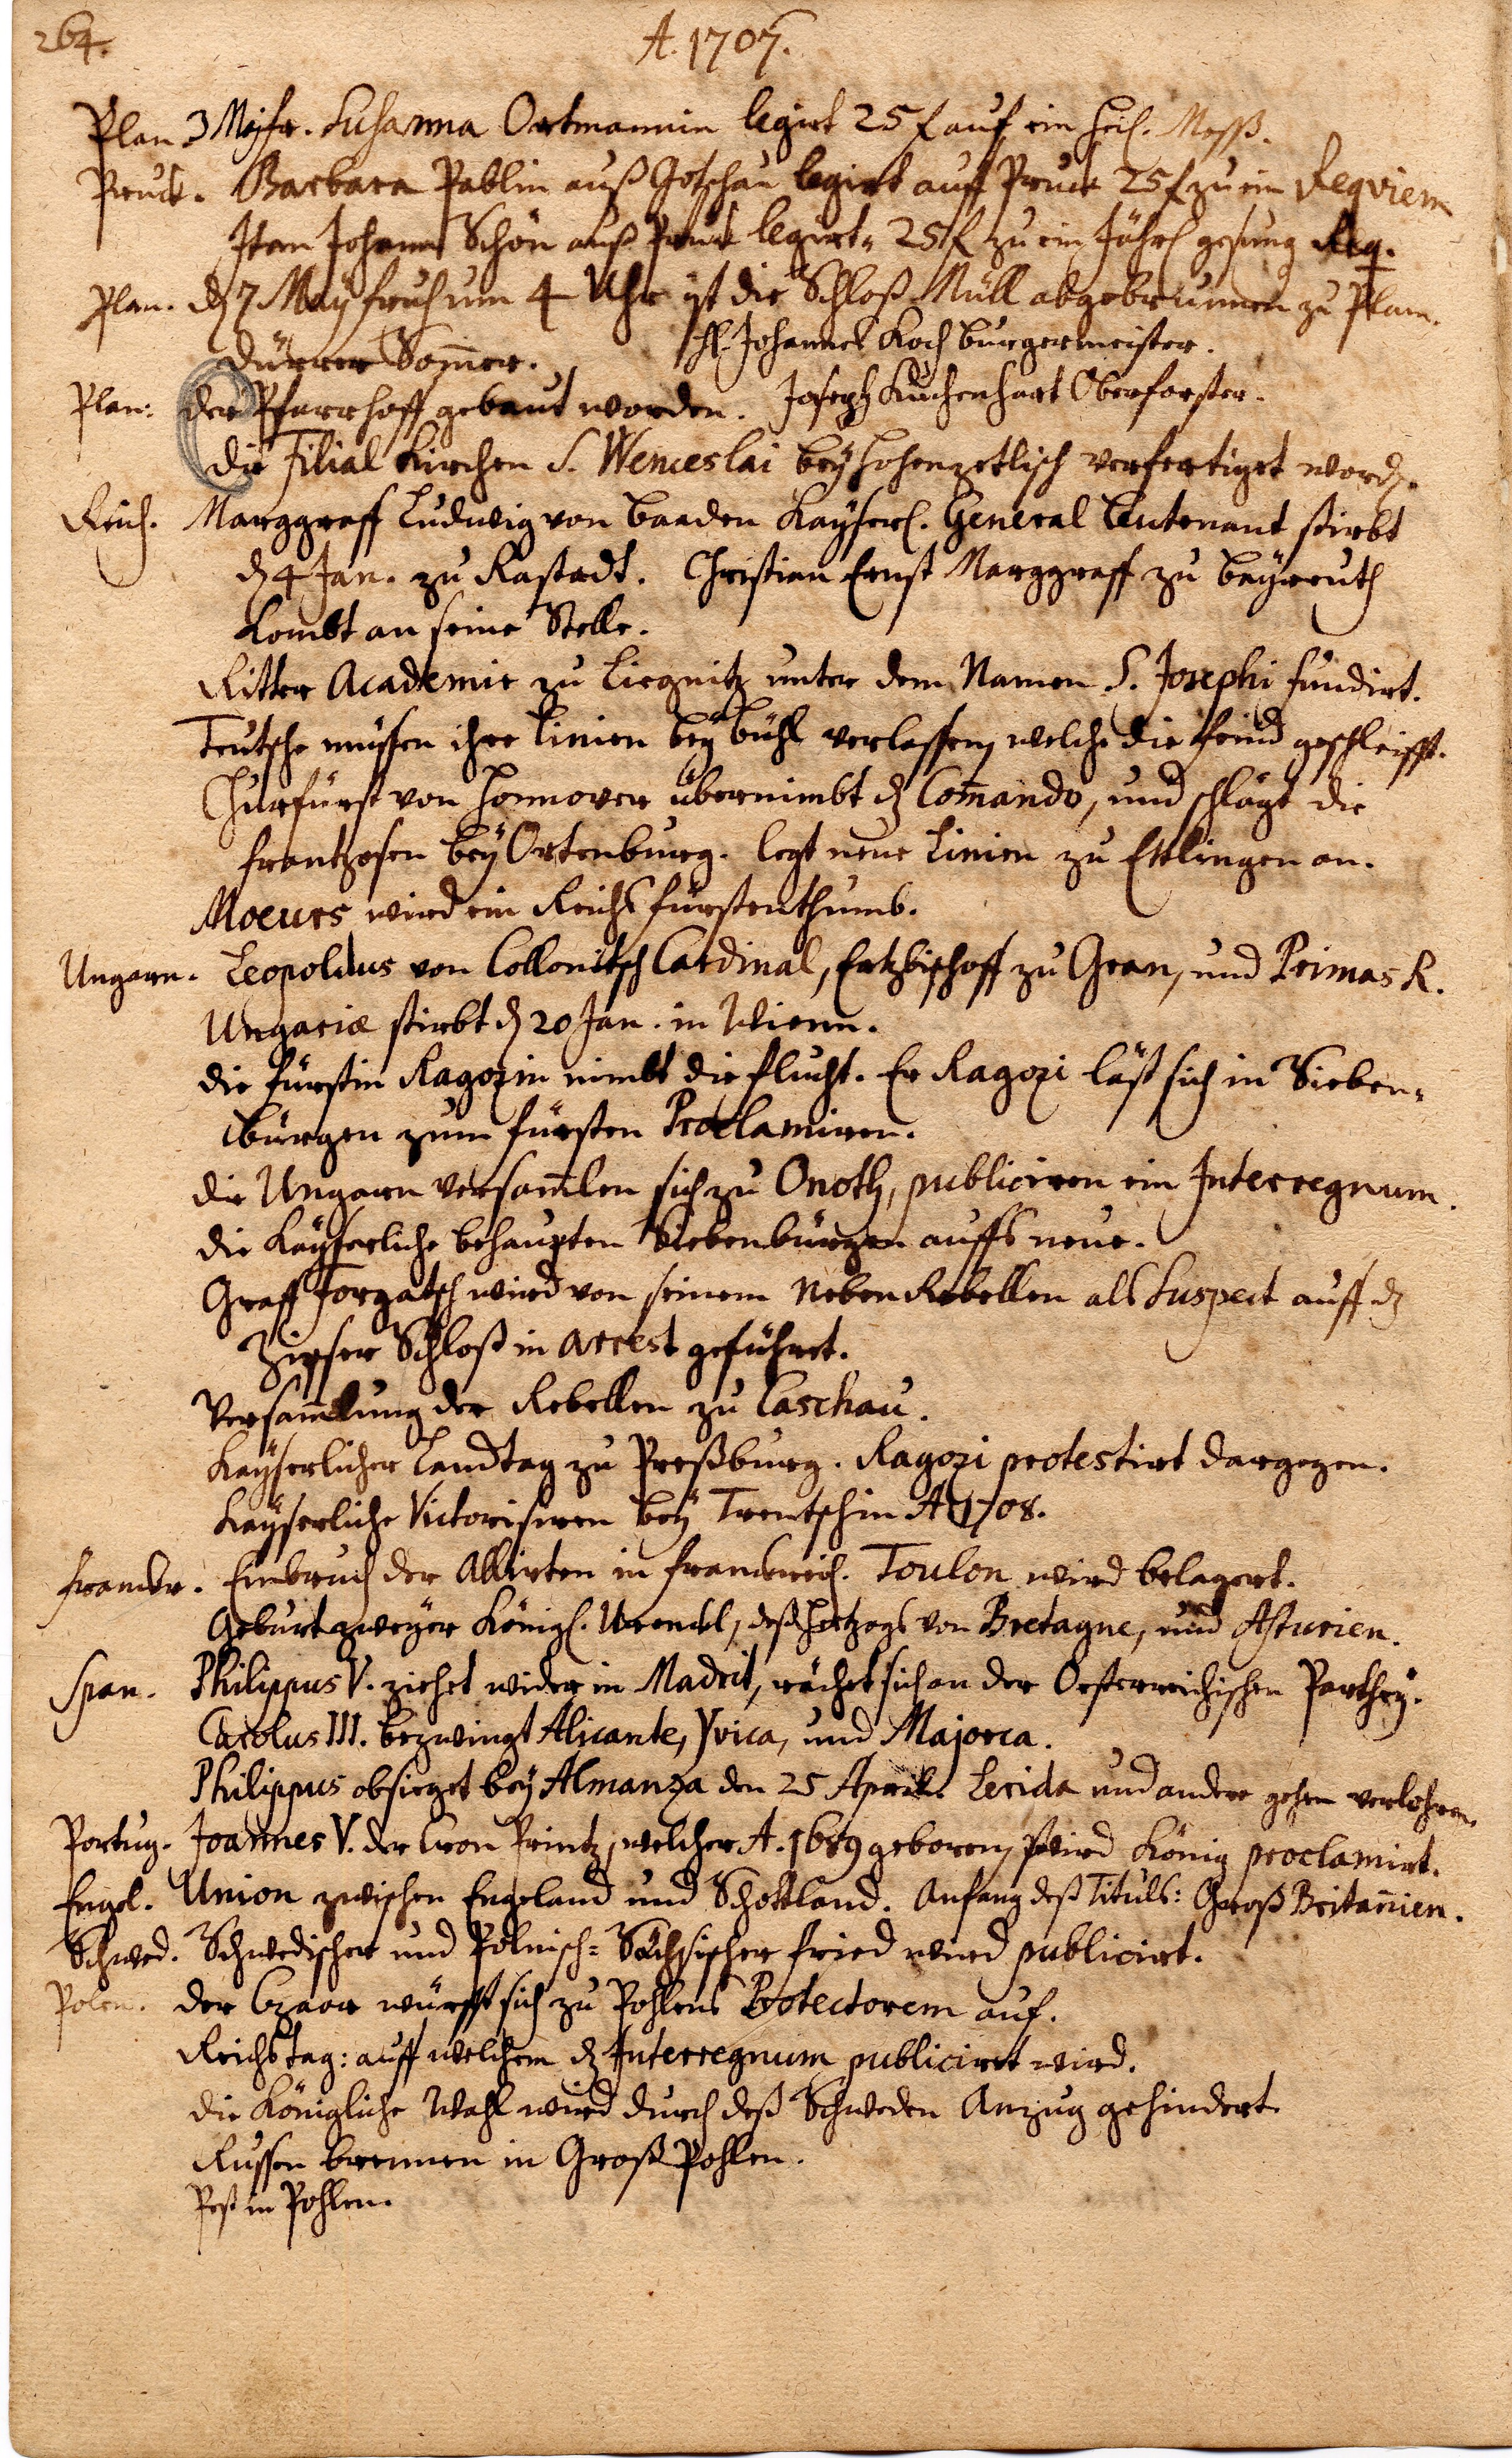 264.
A. 1707.
Plan. 3 Majfr. Susanna Ortmannin legirt 25 f auf ein heil. Mess.
Pruck. Barbara Pablin auß Gotschau legirt auff Pruck 25 f zu ein Reqviem
Item Johann Schön auß Pruck legirt 25 f zu ein Jährl gesung Req.
Plan. dẽ 7 Maÿ fruh um 4 Uhr ist die Schloß Müll abgebrunnen zu Plan.
H. Johannes Koch burgermeister.
Dürrer Som̃er.
Plan: der Pfarrhoff gebaut worden. Joseph Kuchenhart Oberforster.
die Filial Kirchen S. Wenceslai beÿ Hohenzetlisch verfertiget word.
Reich. Marggraff Ludwig von Baaden Kaÿserl. General Leutenant stirbt
dẽ 4 Jan. zu Rastadt. Christian Ernst Marggraff zu Baÿreuth
kombt an seine Stelle.
Ritter Academie zu Liegnitz unter dem Namen S. Josephi fundirt.
Teutsche müssen ihre Linien beÿ Bühl verlassen, welche die feind geschleifft.
Churfürst von Honnover übernimbt dz Com̃ando, und schlägt die
frantzosen beÿ Ortenburg. legt neue Linien zu Ettlingen an.
Moeurs wird ein Reichs fürstenthumb.
Ungarn. Leopoldus von Collonitsch Cardinal, Ertzbischoff zu Gran, und Primas R.
Ungariæ stirbt dẽ 20 Jan. in Wienn.
die fürstin Ragozin nimbt die flucht. Er Ragozi läst sich in Sieben-
bürgen zum fürsten Proclamiren.
die Ungarn versam̃len sich zu Onoth, publiciren ein Interregnum.
die Kaÿserliche behaupten Siebenbürgen auffs neue.
Graff Forgatsch wird von seinem Neben Rebellen als Suspect auff dz
Zipser Schloß in Arrest geführet.
Versam̃lung der Rebellen zu Caschau.
Kaÿserlicher Landtag zu Preßburg. Ragozi protestirt dargegen.
Kaÿserliche Victorisiren beÿ Trentschin A 1708.
franckr. Einbruch der Allirten in franckreich. Toulon wird belagert.
Geburt zweÿer Königl. Urenckl, deß Hertzogs von Bretagne, und Asturien.
Span. Philippus V. ziehet wider in Madrit, rächet sich an der Oesterreichischen Parthey.
Carolus III. bezwingt Alicante, Yvica, und Majorca.
Philippus obsieget beÿ Almanza den 25 April. Lerida und andere gehen verlohren.
Portug. Joannes V. der Cron Printz, welcher A. 1689 geboren, wird König proclamirt.
Engel. Union zwischen Engeland und Schottland. Anfang deß Tituls: Groß Britañien.
Schwed. Schwedischer und Polnisch-Sächsischer fried wird publicirt.
Polen. der Czaar würfft sich zu Pohlens Protectorem auf.
Reichstag: auff welchem dz Interregnum publicirt wird.
die Königliche Wahl wird durch deß Schweden Anzug gehindert.
Russen brennen in Groß Pohlen.
Pest in Pohlen.